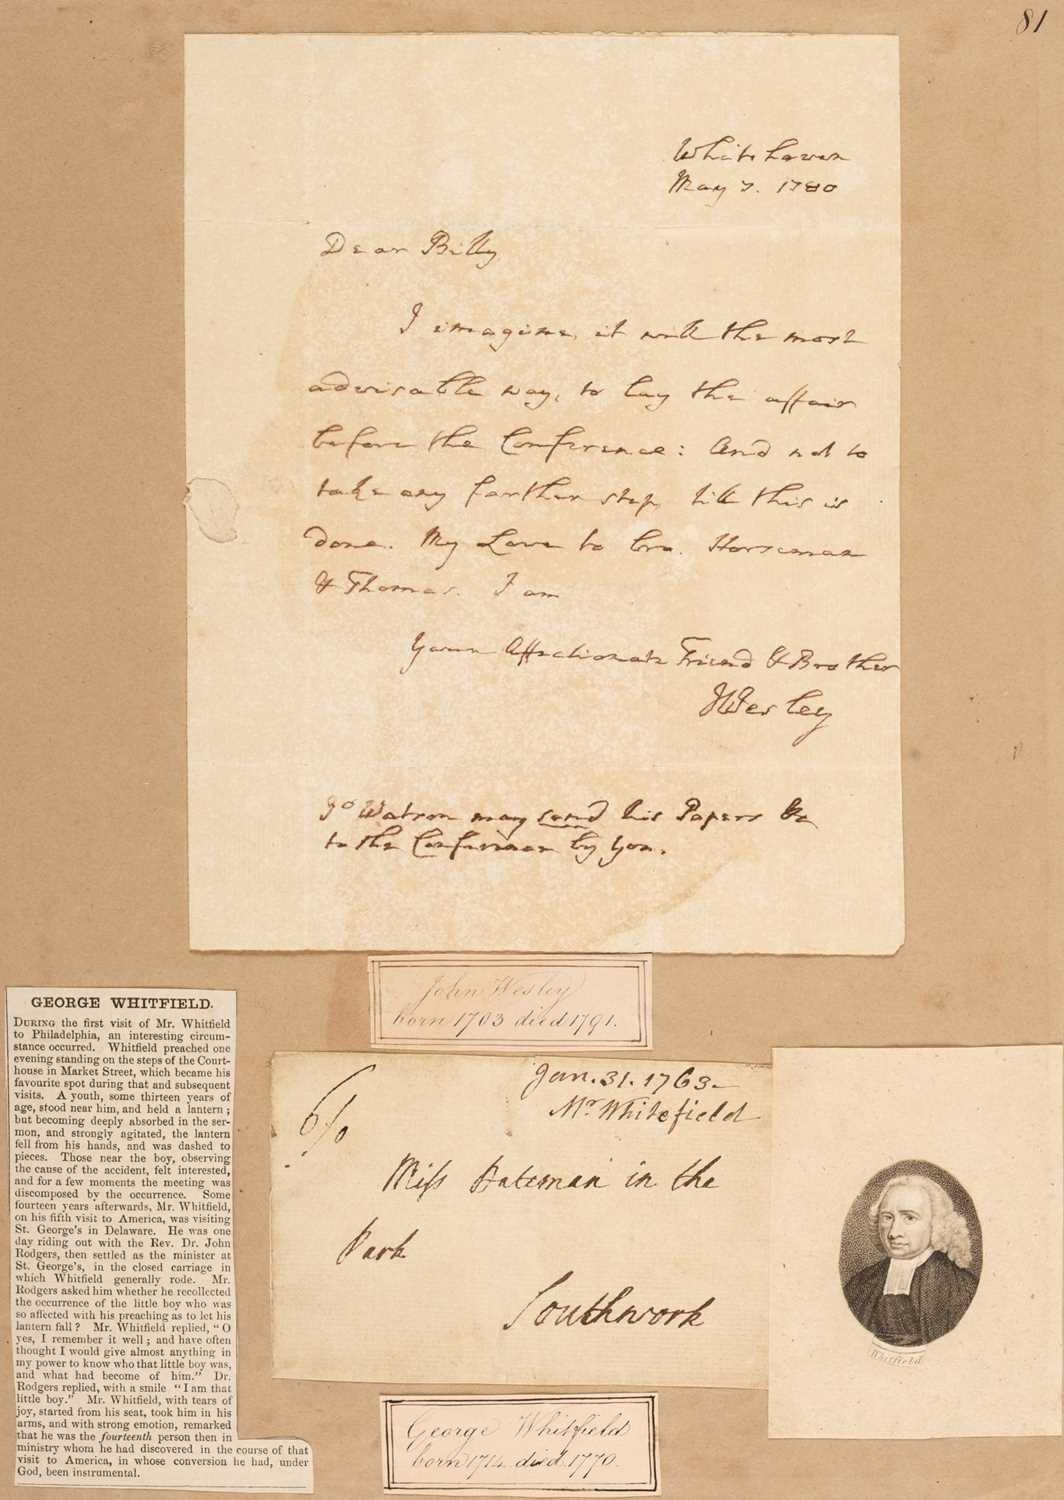 81
Whitehaven
May 7. 1780
Dear Billy
I imagine, it will the most
advisable way, to lay the affair
before the Conference: And not to
take any farther step, till this is
done. My Love to bro. Horseman
& Thomas. I am
Your Affectionate Friend & Brother
JWesley
Jo Watson may send his Papers &c
to the Conference by you.
John Wesley
born 1703 died 1791.
GEORGE WHITFIELD.
DURING the first visit of Mr. Whitfield
to Philadelphia, an interesting circum-
stance occurred. Whitfield preached one
evening standing on the steps of the Court-
house in Market Street, which became his
favourite spot during that and subsequent
visits. A youth, some thirteen years of
age, stood near him, and held a lantern;
but becoming deeply absorbed in the ser-
mon, and strongly agitated, the lantern
fell from his hands, and was dashed to
pieces. Those near the boy, observing
the cause of the accident, felt interested,
and for a few moments the meeting was
discomposed by the occurrence. Some
fourteen years afterwards, Mr. Whitfield,
on his fifth visit to America, was visiting
St. George's in Delaware. He was one
day riding out with the Rev. Dr. John
Rodgers, then settled as the minister at
St. George's, in the closed carriage in
which Whitfield generally rode. Mr.
Rodgers asked him whether he recollected
the occurrence of the little boy who was
so affected with his preaching as to let his
lantern fall? Mr. Whitfield replied, "O
yes, I remember it well; and have often
thought I would give almost anything in
my power to know who that little boy was,
and what had become of him." Dr.
Rodgers replied, with a smile "I am that
little boy." Mr. Whitfield, with tears of
joy, started from his seat, took him in his
arms, and with strong emotion, remarked
that he was the fourteenth person then in
ministry whom he had discovered in the course of that
visit to America, in whose conversion he had, under
God, been instrumental.
Jan. 31. 1763
Mr. Whitefield
Miss Bateman in the
Park
Southwork
Whitfield
George Whitfield
born 1714 died 1770.